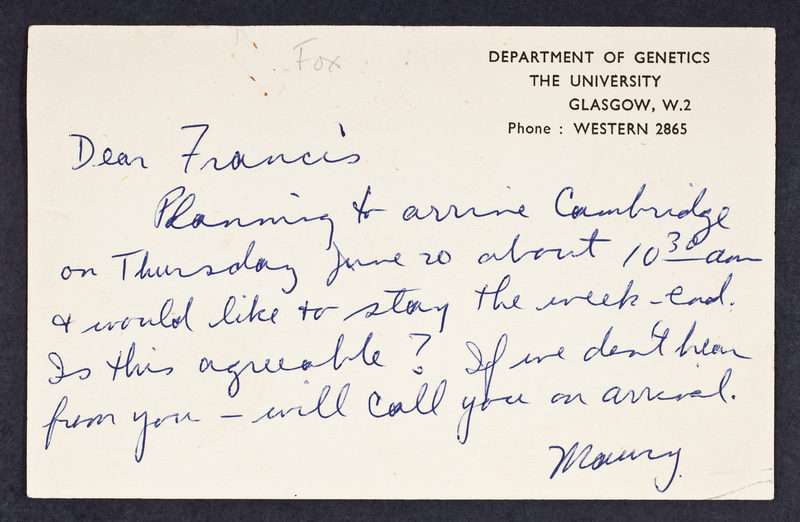 Fox
DEPARTMENT OF GENETICS
THE UNIVERSITY
GLASGOW, W.2
Phone : WESTERN 2865
Dear Francis
Planning to arrive Cambridge
on Thursday June 20 about 10 30 am
& would like to stay the week-end.
Is this agreeable? If we don't hear
from you – will call you on arrival.
Maury.